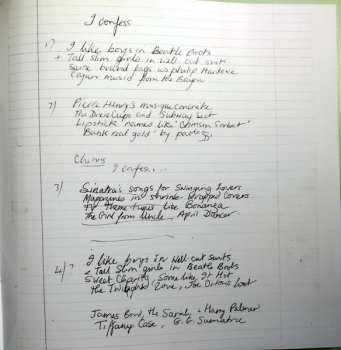 I confess
1) I like boys in Beatle Boots
+ Tall slim girls in well cut suits
Suite bound bags
Cajun music from the Bayou
2) Pierre Henry's musique concrete
The Dixie Cups and Subway Sect
Lipstick names like 'Crimson Sorbet'
'Bank roll gold' by
Chorus
I confess..
3) Sinatra's songs for Swinging Lovers
Magazines in shrink wrapped covers
TV Theme tunes like Bonanza
The Girl from Uncle, April Dancer
4) I like boys in well cut suits
+ Tall Slim girls in Beatle Boots
Sweet Charity, Some like It Hot
the Twilight Zone, Joe Orton's Loot
James Bond, the Saint, + Harry Palmer
Tiffany Case, G.G. Sumatra